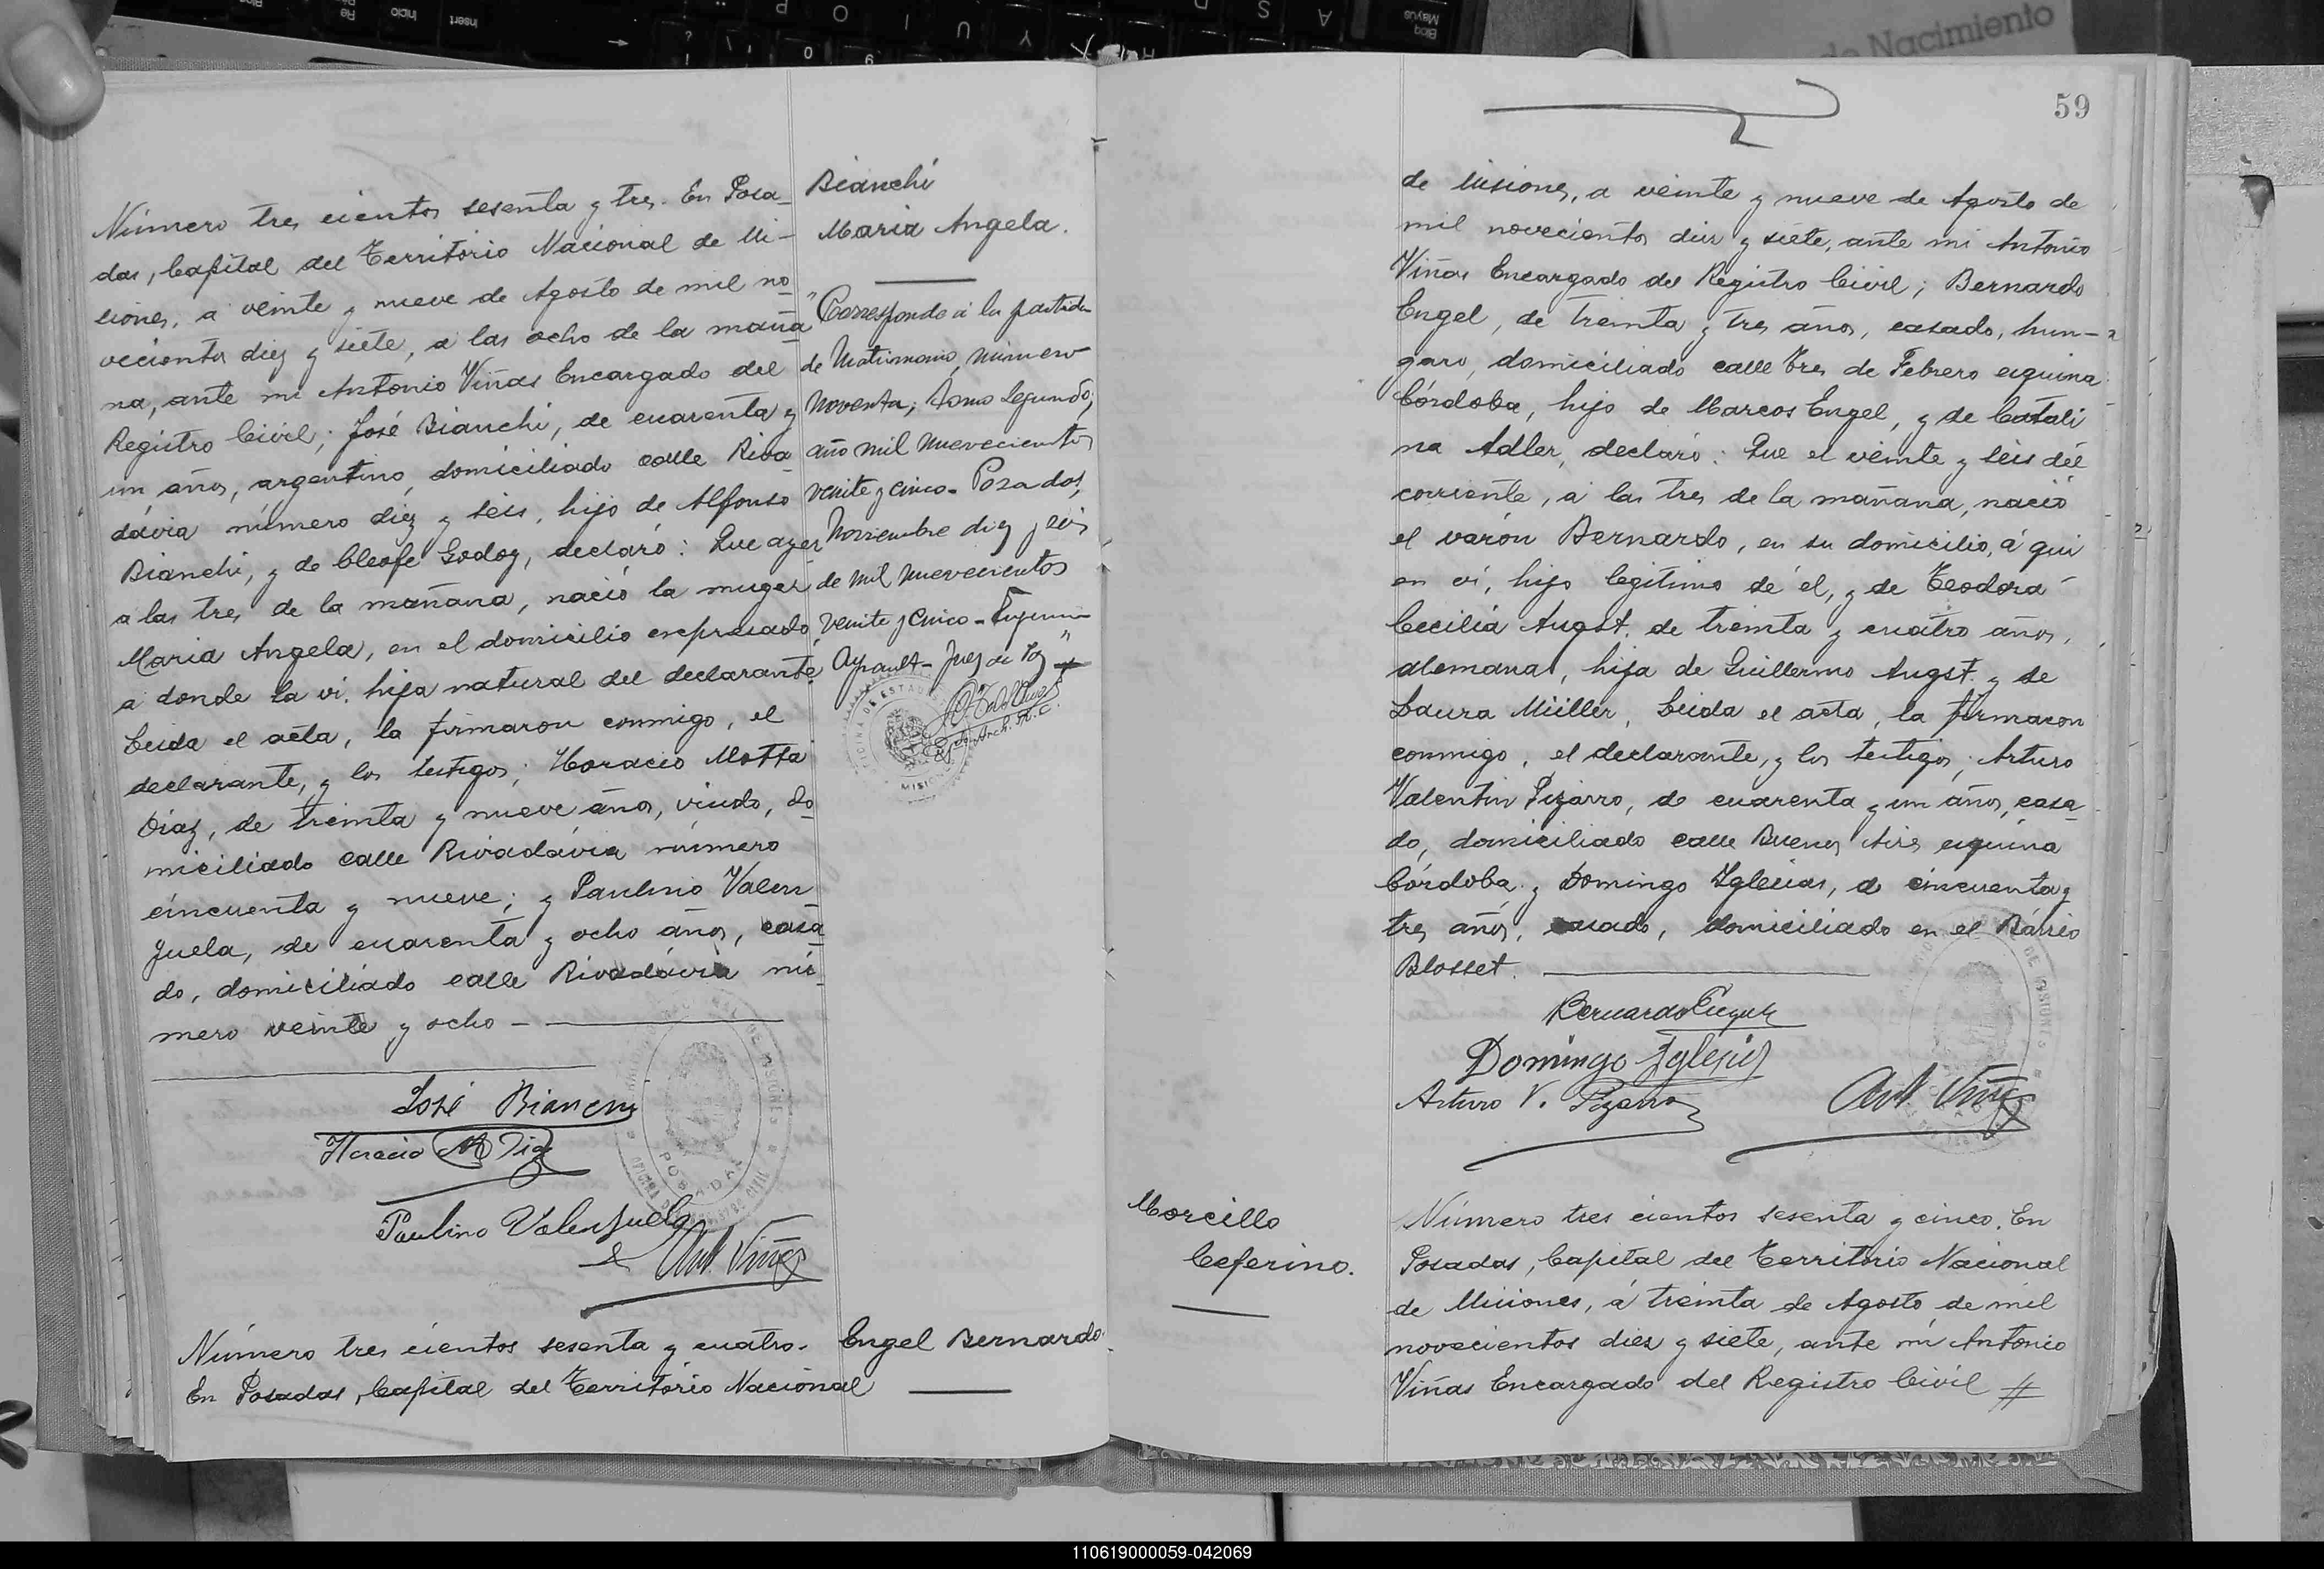 Número tres cientos sesenta y tres. En Posa-
das, Capital del Territorio Nacional de Mi-
ciones, a veinte y nueve de Agosto de mil no-
vecientos diez y siete, a las ocho de la maña-
na, ante mi Antonio Viñas Encargado del
Registro Civil; José Bianchi, de cuarenta y
un años, argentino, domiciliado calle Riva-
dávia número diez y seis, hijo de Alfonso
Bianchi, y de Cleofe Godoy, declaró: Que ayer
a las tres de la mañana, nació la muger
Maria Angela, en el domicilio expresado
a donde la vi, hija natural del declarante.
Leida el acta, la firmaron conmigo, el
declarante, y los testigos; Horacio Motta
Diaz, de treinta y nueve años, viudo, do-
miciliado calle Rivadávia número
cincuenta y nueve; y Paulino Valen
zuela, de cuarenta y ocho años, casa-
do, domiciliado calle Rivadávia nú-
mero veinte y ocho -
José Bianchi
Horacio M Diaz
Paulino Valenzuela
Ant. Viñas
POSADAS
Bianchi
Maria Angela.
"Corresponde á la partida
de Matrimonio, número
noventa; Tomo Segundo;
año mil nuevecientos
veinte y cinco - Posadas,
Noviembre diez y seis
de mil nuevecientos
veinte y cinco - Eugenio
Ayrault - Juez de Paz"
MISIONES
Número tres cientos sesenta y cuatro.
En Posadas, Capital del Territorio Nacional
Engel Bernardo.
59
de Misiones, a veinte y nueve de Agosto de
mil novecientos diez y siete, ante mi Antonio
Viñas Encargado del Registro Civil; Bernardo
Engel, de treinta y tres años, casado, hun-
garo, domiciliado calle Tres de Febrero esquina
Córdoba, hijo de Marcos Engel, y de Catali
na Adler, declaró: Que el veinte y seis del
corriente, a las tres de la mañana, nació
el varón Bernardo, en su domicilio, á qui
en ví, hijo legitimo de él, y de Teodora
Cecilia Augst. de treinta y cuatro años,
alemana, hija de Guillermo Augst. y de
Laura Müller, Leida el acta, la firmaron
conmigo, el declarante, y los testigos; Arturo
Valentin Pizarro, de cuarenta y un años, casa-
do, domiciliado calle Buenos Aires esquina
Córdoba, y Domingo Yglesias, de cincuenta y
tres años, casado, domiciliado en el Bárrio
Blosset.
Bernardo Engel
Domingo Yglesias
Arturo V. Pizarro
Ant. Viñas
Morcillo
Ceferino.
Número tres cientos sesenta y cinco. En
Posadas, Capital del Territorio Nacional
de Miciones, á treinta de Agosto de mil
novecientos diez y siete, ante mí Antonio
Viñas Encargado del Registro Civil
de Nacimiento
110619000059-042069